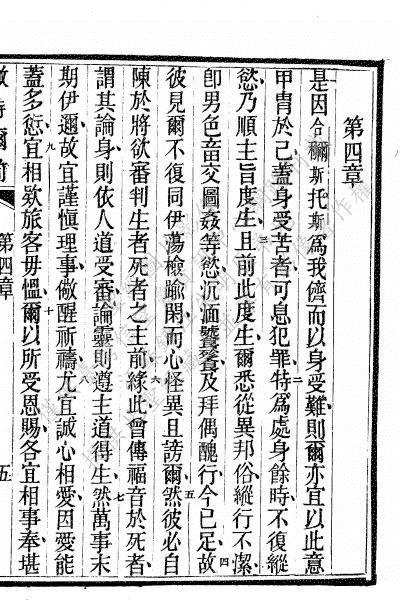 第四章
是因合斯托斯為我儕而以身受難則爾亦宜以此意
甲冑於己蓋身受苦者可息犯罪二特為處身餘時不復縱
慾乃順主旨度生三且前此度生爾悉從異邦俗縱行不潔
卽男色畜交圖姦等慾沉湎饕餮及拜偶醜行今已足四故
彼見爾不復同伊蕩檢踰閑而心怪異且謗爾五然彼必自
陳於將欲審判生者死者之主前六緣此曾傳福音於死者
謂其論身則依人道受審論靈則遵主道得生七然萬事末
期伊邇故宜謹慎理事儆醒祈禱八尤宜誠心相愛因愛能
蓋多愆九宜相欵旅客毋慍十爾以所受恩賜各宜相事奉堪
第四章 五